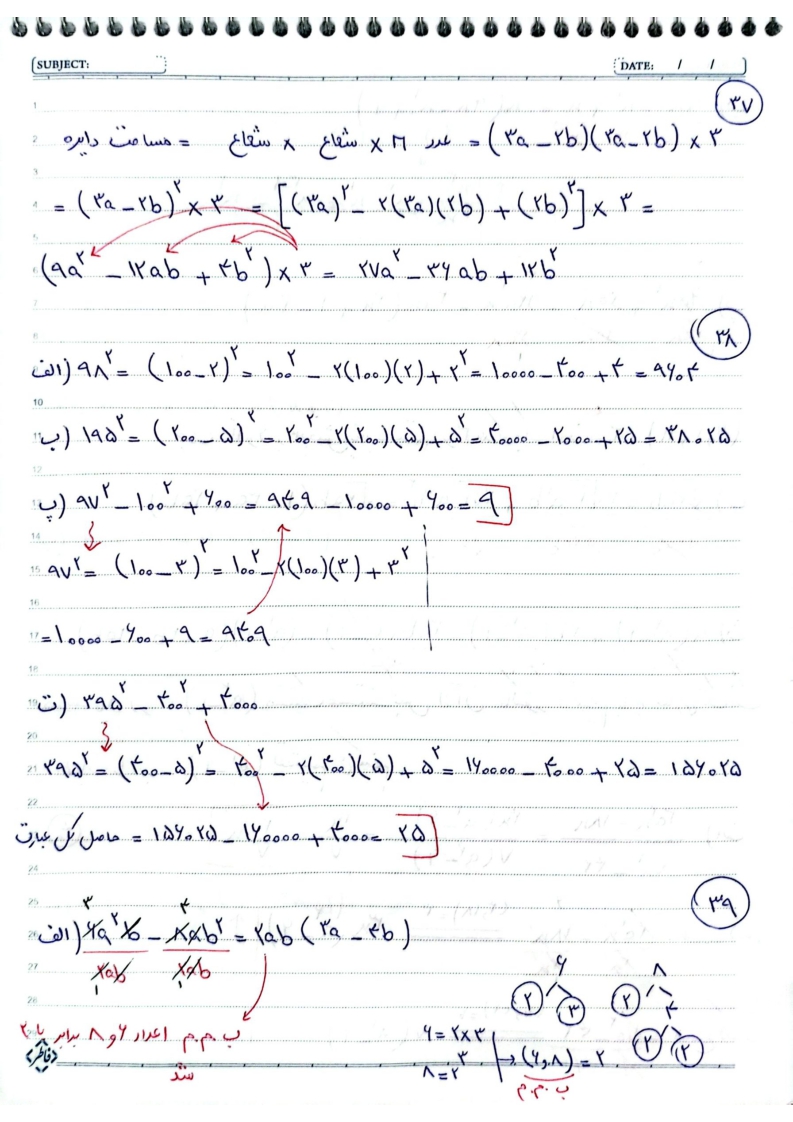 SUBJECT: DATE: / /
۳۷
مساحت دایره = شعاع × شعاع × π عدد = (۳a − ۲b)(۳a − ۲b) × ۳
= (۳a − ۲b)² × ۳ = [(۳a)² − ۲(۳a)(۲b) + (۲b)²] × ۳ =
(۹a² − ۱۲ab + ۴b²) × ۳ = ۲۷a² − ۳۶ab + ۱۲b²
۳۸
الف) ۹۸² = (۱۰۰ − ۲)² = ۱۰۰² − ۲(۱۰۰)(۲) + ۲² = ۱۰۰۰۰ − ۴۰۰ + ۴ = ۹۶۰۴
ب) ۱۹۵² = (۲۰۰ − ۵)² = ۲۰۰² − ۲(۲۰۰)(۵) + ۵² = ۴۰۰۰۰ − ۲۰۰۰ + ۲۵ = ۳۸۰۲۵
پ) ۹۷² − ۱۰۰² + ۶۰۰ = ۹۴۰۹ − ۱۰۰۰۰ + ۶۰۰ = ۹
۹۷² = (۱۰۰ − ۳)² = ۱۰۰² − ۲(۱۰۰)(۳) + ۳²
= ۱۰۰۰۰ − ۶۰۰ + ۹ = ۹۴۰۹
ت) ۳۹۵² − ۴۰۰² + ۴۰۰۰
۳۹۵² = (۴۰۰ − ۵)² = ۴۰۰² − ۲(۴۰۰)(۵) + ۵² = ۱۶۰۰۰۰ − ۴۰۰۰ + ۲۵ = ۱۵۶۰۲۵
حاصل کل عبارت = ۱۵۶۰۲۵ − ۱۶۰۰۰۰ + ۴۰۰۰ = ۲۵
۳۹
۳ ۴
الف) ۶a²b − ۸ab² = ۲ab (۳a − ۴b)
۲ab ۲ab
۱ ۱
۶ ۸
۲ ۳ ۲ ۴
۲ ۲
ب.م.م اعداد ۶ و ۸ برابر با ۲
شد
۶ = ۲ × ۳
۸ = ۲³ → (۶,۸) = ۲
ب.م.م